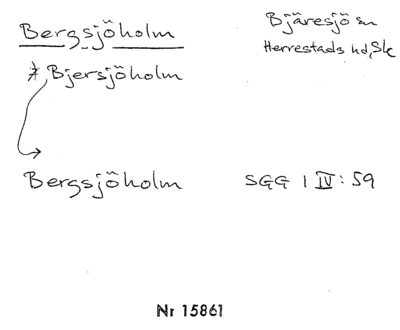 Bergsjöholm
Bjäresjö sn
Herrestads hd, Sk
≠ Bjersjöholm
Bergsjöholm SGG I IV: 59
Nr 15861